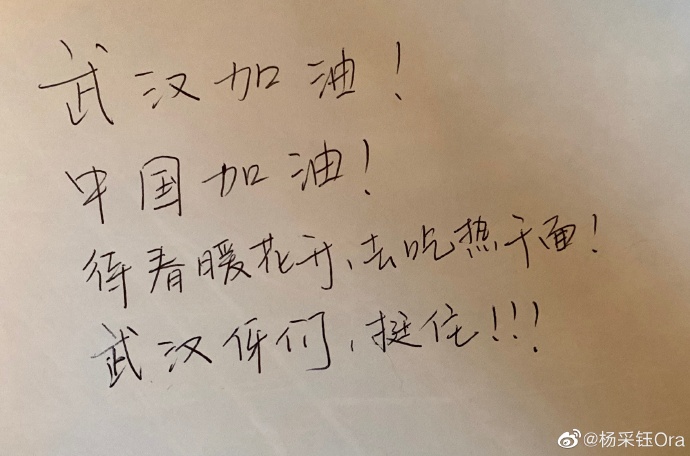 武汉加油!
中国加油!
待春暖花开、去吃热干面!
武汉伢们,挺住!!!
@杨采钰Ora